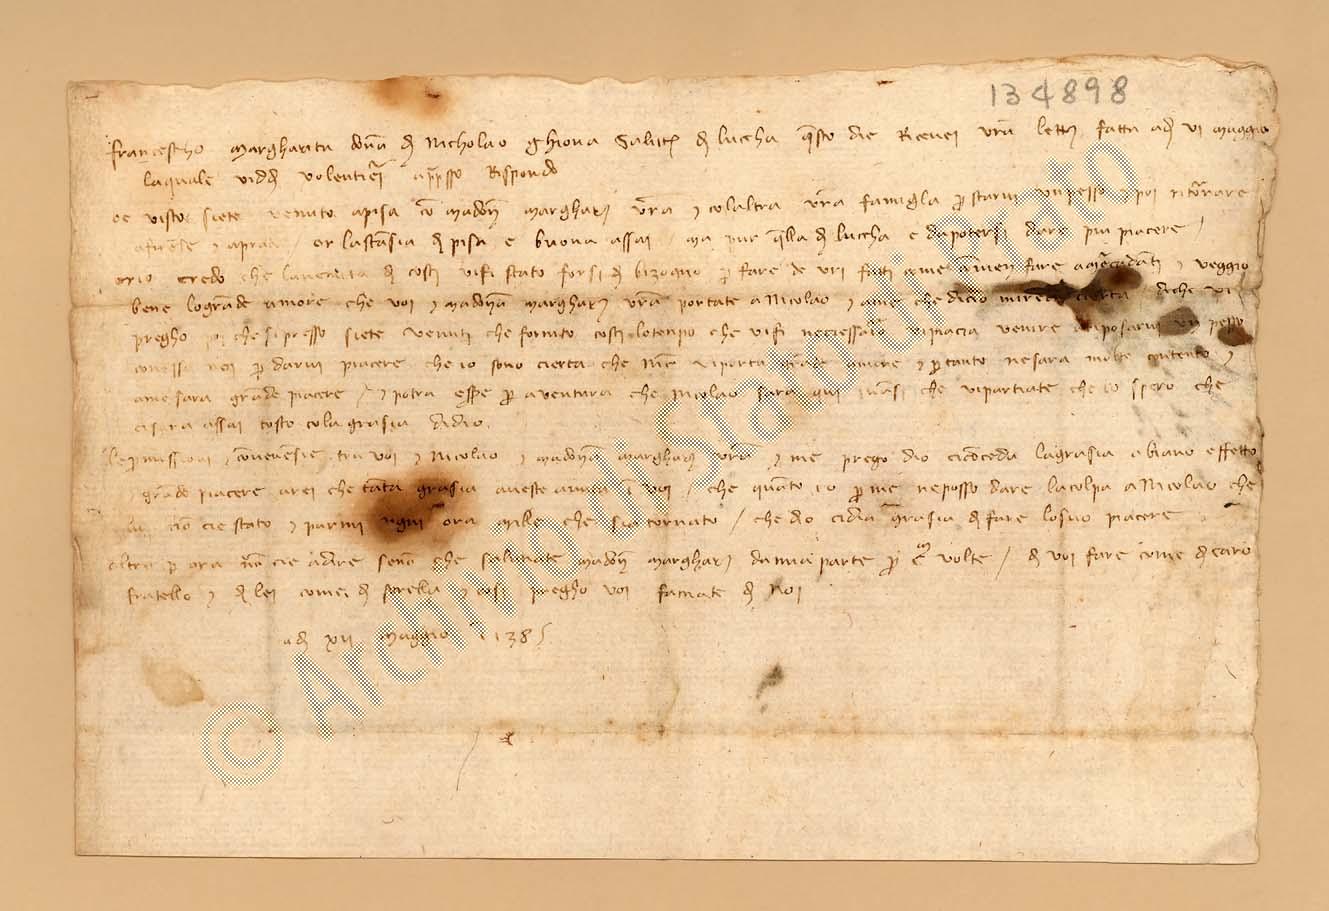 134898
Francescho Margharita dona di Nicholao Ghiova Salute di Luccha questo die Ricevei vra lettera fatta adi VI maggio
la quale viddi volentieri apresso Rispondo
oe visto siete venuto a pisa co madona Margharita vra e col altra vra famigla per starvi un pesso e poi ritornare
a firense e a prato / or la stansia di pisa e buona assai / ma pur quella di luccha e da potersi dare piu piacere /
che l di costi vi sia stato forsi di bizogno per fare de vri fatti come fare a mercadanti e veggio
bene lo grande amore che voi e madona Margharita vra portate a Nicolao e a me che dicho Di che vi
pregho poi che si presso siete venuti che fornito costi lo tenpo che vi sia necessario vi piacia venire a riposarvi un pesso
con noi per darvi piacere che io sono cierta che Nicolao vi porta grande amore e per tanto ne sara molto contento e
a me sara grande piacere / e potra essere per aventura che nicolao sara qui inansi che vi partiate che io spero che
ci sara assai tosto cola grasia di dio
le promissioni e convenensie tra voi e Nicolao e madona Margharita vra e me prego dio ci conceda la grasia abiano effetto
e grande piacere arei che tanta grasia avesse in voi / che quanto io per me ne posso dare la colpa a Nicolao che
non cie stato e parmi ogni ora mille che sia tornato / che dio ci dia grasia di fare lo suo piacere
altro per ora non cie a dire seno che salutate madona Margharita da mia parte per cm volte / di voi fare come di caro
fratello e di lei come di sorella e cosi pregho voi faciate di Noi
adi XII maggio 1385
© Archivio di Stato di Prato